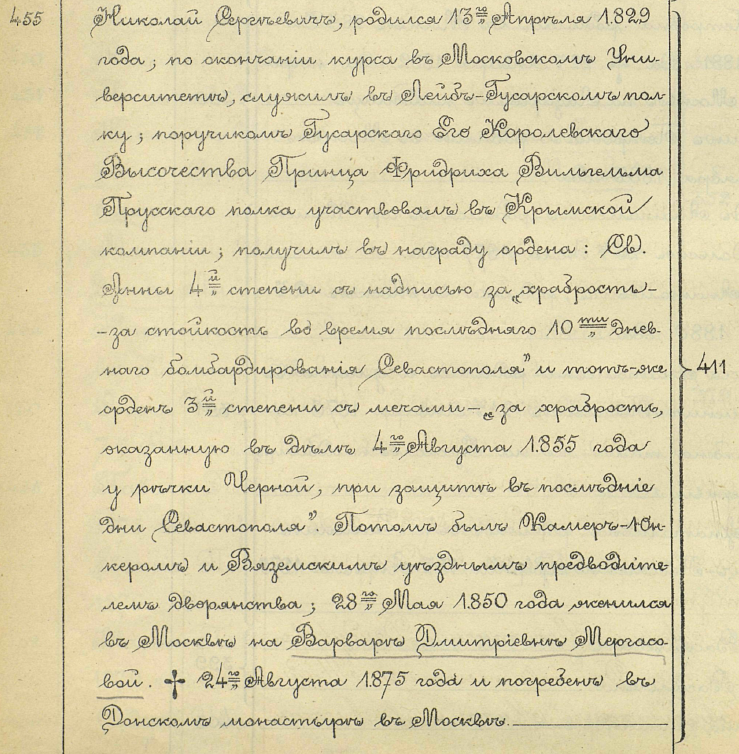 455 Николай Сергѣевичъ, родился 13го Апрѣля 1829
года; по окончаніи курса въ Московскомъ Уни-
верситетѣ, служилъ въ Лейбъ-Гусарскомъ пол-
ку; поручикомъ Гусарскаго Его Королевскаго
Высочества Принца Фридриха Вильгельма
Прусскаго полка участвовалъ въ Крымской
компаніи; получилъ въ награду ордена: Св.
Анны 4й степени съ надписью за „храбрость-
-за стойкость во время послѣдняго 10ти днев-
наго бомбардированія Севастополя" и тотъ-же 411
орденъ 3й степени съ мечами-„за храбрость,
оказанную въ дѣлѣ 4го Августа 1855 года
у рѣчки Черной, при защитѣ въ послѣдніе
дни Севастополя". Потомъ былъ Камеръ-Юн-
керомъ и Вяземскимъ уѣзднымъ предводите-
лемъ дворянства; 28го Мая 1850 года женился
въ Москвѣ на Варварѣ Дмитріевнѣ Мергасо
вой. † 24го Августа 1875 года и погребенъ въ
Донскомъ монастырѣ въ Москвѣ.